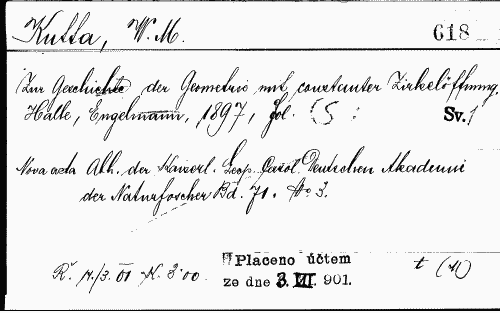 Kutta, W. M. 618
Zur Geschichte der Geometrie mit constanter Zirkelöffnung.
Halle, Engelmann, 1897, fol. (S : Sv. 1
Nova acta Abh. der Kaiserl. Leop. Carol. Deutschen Akademie
der Naturforscher Bd. 71. No 3.
Placeno účtem
R. 14/3. 01 K. 3·00. t (M)
ze dne 3. VII. 901.